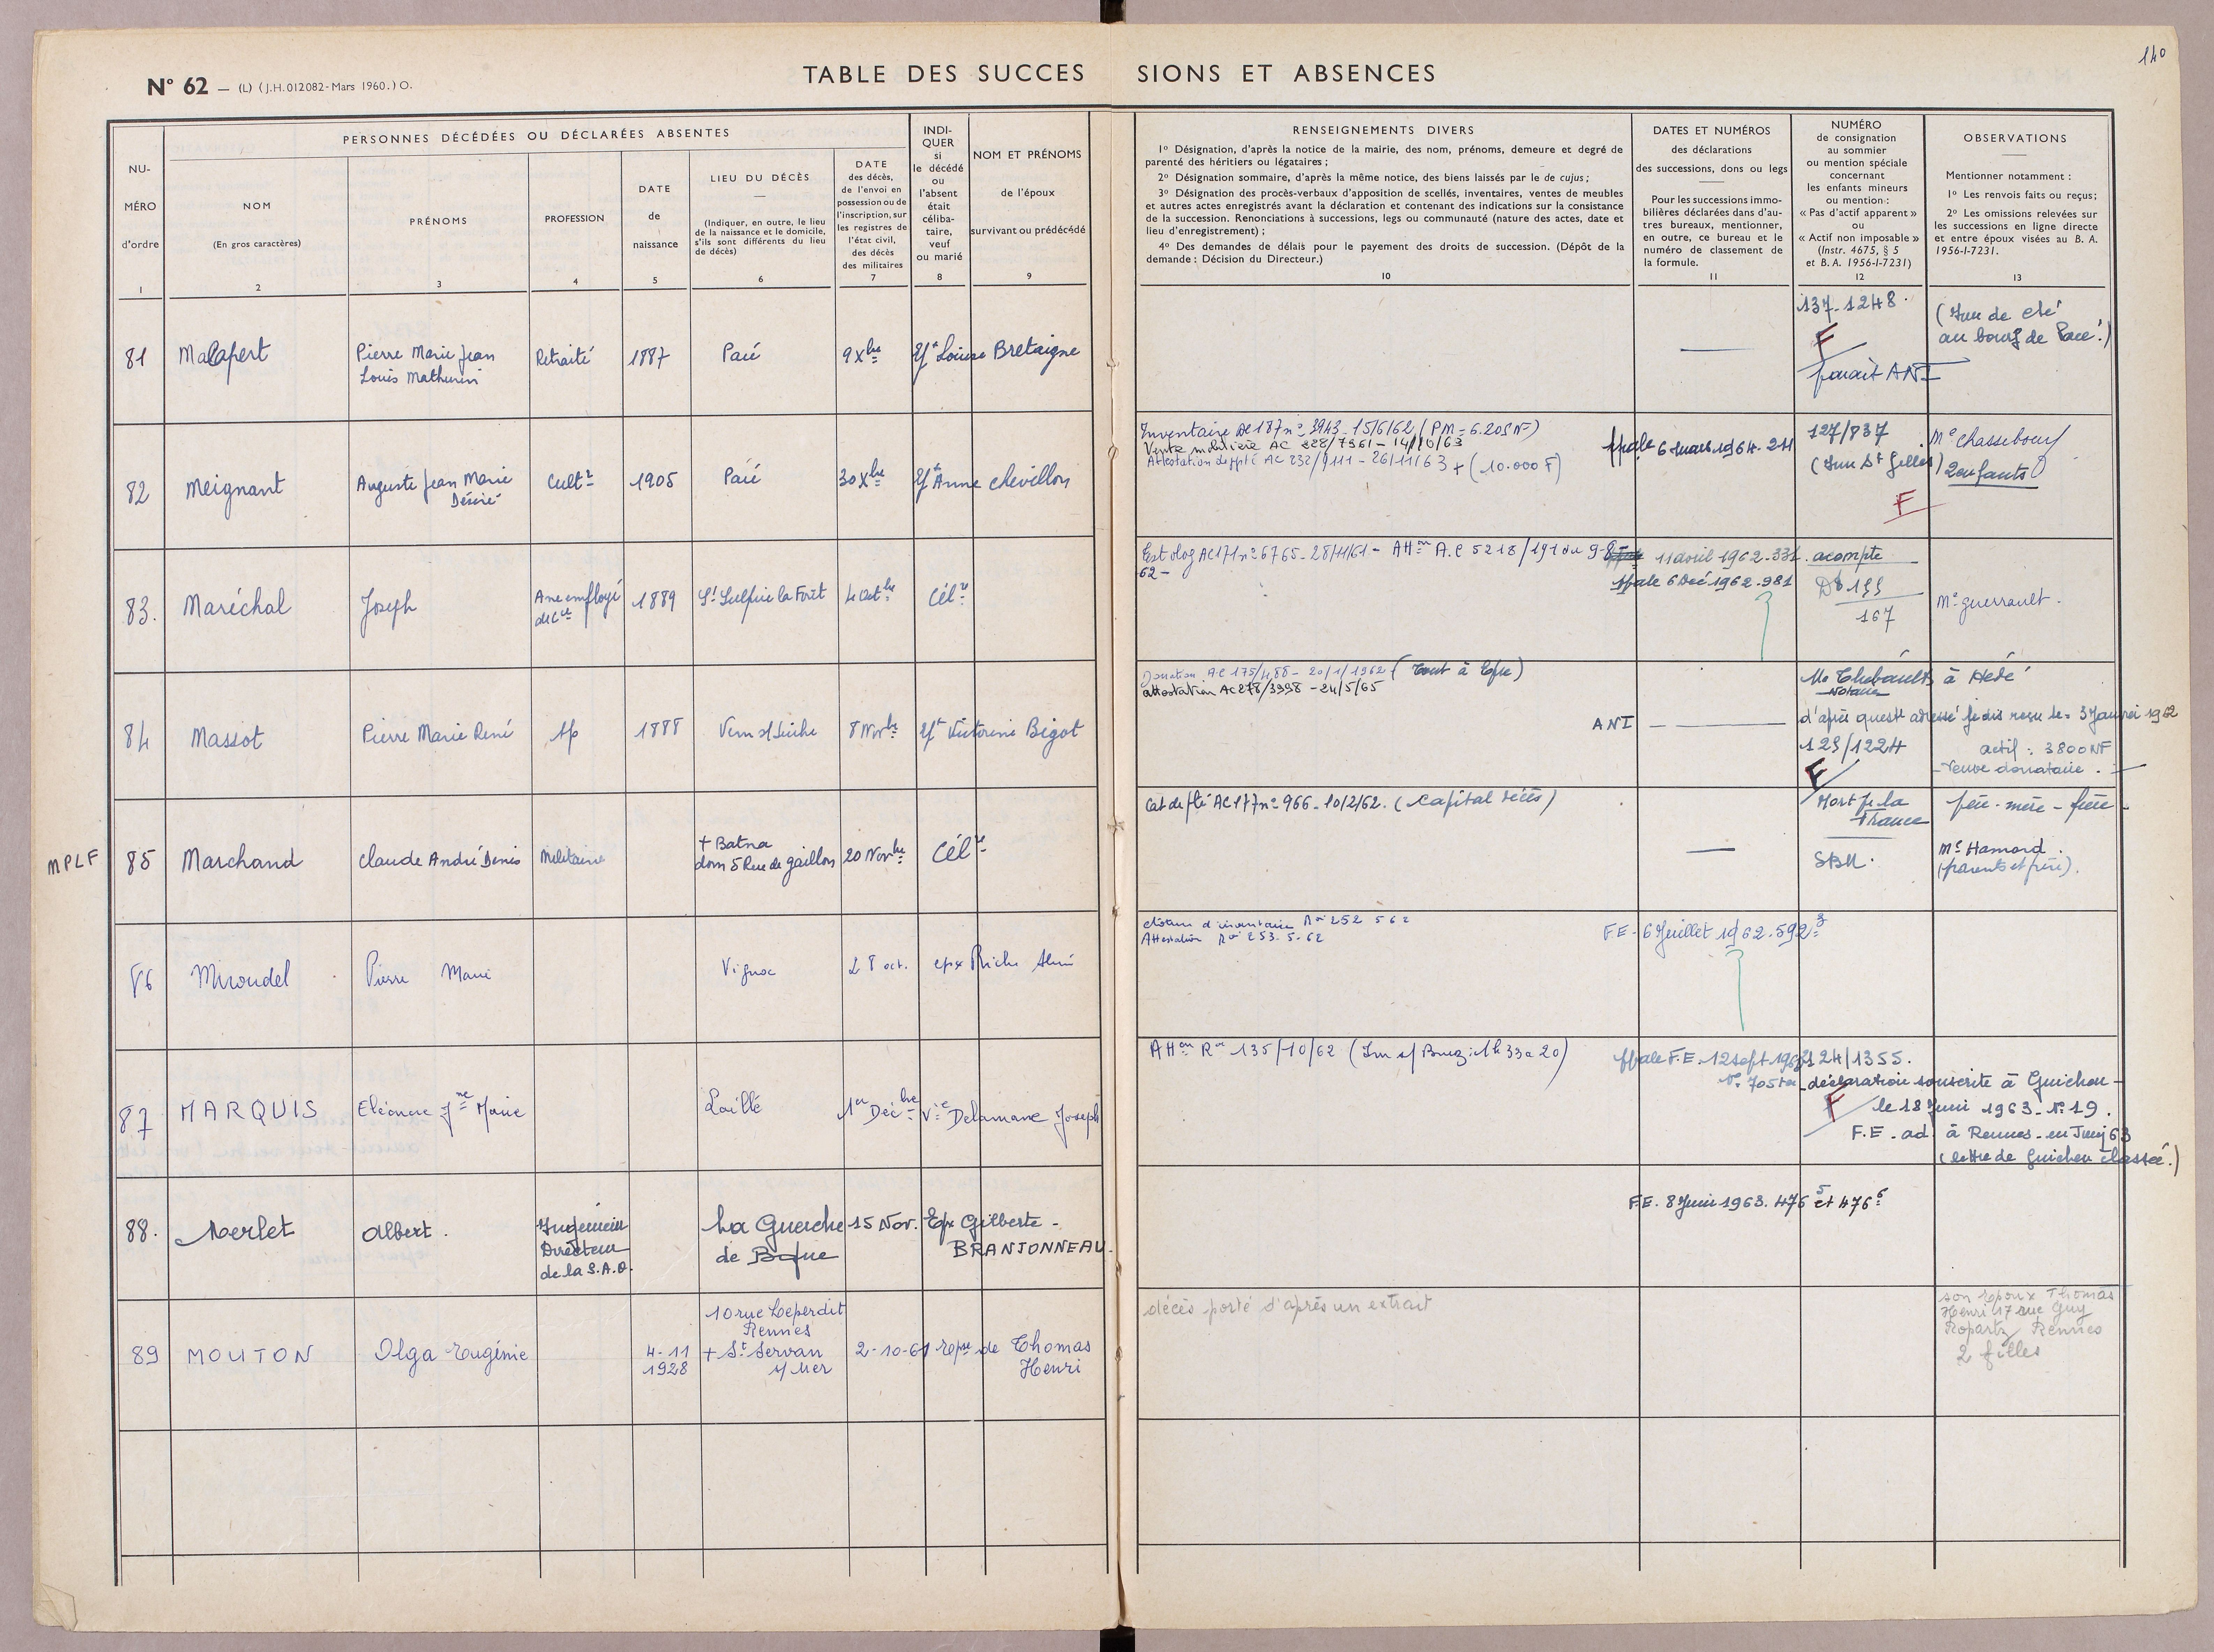 140
N° 62 — (L) (J.H. 012082 - Mars 1960.) O.
TABLE DES SUCCESSIONS ET ABSENCES
PERSONNES DÉCÉDÉES OU DÉCLARÉES ABSENTES
NU-
MÉRO
d'ordre
1
NOM
(En gros caractères)
2
PRÉNOMS
3
PROFESSION
4
DATE
de
naissance
5
LIEU DU DÉCÈS
(Indiquer, en outre, le lieu
de la naissance et le domicile,
s'ils sont différents du lieu
de décès)
6
DATE
des décès,
de l'envoi en
possession ou de
l'inscription, sur
les registres de
l'état civil,
des décès
des militaires
7
INDI-
QUER
si
le décédé
ou
l'absent
était
céliba-
taire,
veuf
ou marié
8
NOM ET PRÉNOMS
de l'époux
survivant ou prédécédé
9
RENSEIGNEMENTS DIVERS
1° Désignation, d'après la notice de la mairie, des nom, prénoms, demeure et degré de
parenté des héritiers ou légataires ;
2° Désignation sommaire, d'après la même notice, des biens laissés par le de cujus ;
3° Désignation des procès-verbaux d'apposition de scellés, inventaires, ventes de meubles
et autres actes enregistrés avant la déclaration et contenant des indications sur la consistance
de la succession. Renonciations à successions, legs ou communauté (nature des actes, date et
lieu d'enregistrement) ;
4° Des demandes de délais pour le payement des droits de succession. (Dépôt de la
demande : Décision du Directeur.)
10
DATES ET NUMÉROS
des déclarations
des successions, dons ou legs
Pour les successions immo-
bilières déclarées dans d'au-
tres bureaux, mentionner,
en outre, ce bureau et le
numéro de classement de
la formule.
11
NUMÉRO
de consignation
au sommier
ou mention spéciale
concernant
les enfants mineurs
ou mention :
« Pas d'actif apparent »
ou
« Actif non imposable »
(Instr. 4675, § 5
et B. A. 1956-I-7231)
12
OBSERVATIONS
Mentionner notamment :
1° Les renvois faits ou reçus ;
2° Les omissions relevées sur
les successions en ligne directe
et entre époux visées au B. A.
1956-I-7231.
13
81
Malapert
Pierre Marie Jean
Louis Mathurin
Retraité
1887
Pacé
9 Xbre
Louise Bretaigne
137-1248
F
parait ANI
au bourg de Pacé)
82
Meignant
Auguste Jean Marie
Désiré
Cultr
1905
Pacé
30 Xbre
Anne Chevillon
Inventaire AC 187 n° 3943 - 15/6/62 (PM = 6.205 NF)
Vente mobilière AC 228/7561 - 14/10/63
Attestation de ppté AC 232/9111 - 26/11/63 + (10.000 F)
6 mars 1964. 241
127/837
(Imm St Gilles)
F
Me Chassebœuf
2 enfants
83.
Maréchal
Joseph
Anc employé
de Cce
1889
St Sulpice la Forêt
4 Octbre
Célre
AC 171 n° 6765 - 28/11/61 - Attion A.C 5218/191 du 9-8-
62 -
11 avril 1962 - 331. acompte
ppale 6 Déc 1962 - 981
167
Me guerrault.
84
Massot
Pierre Marie René
sp
1888
Vern s/ Seiche
8 Novbre
Victorine Bigot
Donation AC 175/488 - 20/1/1962 (
attestation AC 278/3998 - 24/5/65
ANI
Me Thébault à Hédé
Notaire
3 Janvier 1962
129/1224
actif : 3800 NF
F
- Veuve donataire.
MPLF
85
Marchand
Claude André Denis
Militaire
+ Batna
dom 5 Rue de gaillon
20 Novbre
Célre
AC 177 n° 966 - 10/2/62. (Capital décès)
Mort pr la
France
SBM.
père - mère - frère -
Me Hamard.
(parents et frère).
86
Miroudel
Pierre Marie
Vignoc
28 oct.
epx Riche
Clôture d'inventaire Ron 252 5 62
Attestation Ron 253-5-62
F.E - 6 Juillet 1962. 592 3
87
MARQUIS
Eléonore Jne Marie
Laillé
1er Décbre
Vve Delamarre Joseph
Atton Ron 135/10/62
ppale F.E. 12 sept 1962
N° 705ter
124/1355.
déclaration souscrite à Guichen -
F
le 18 Juin 1963 - N° 19.
F.E - ad. à Rennes - en Juin 63
(lettre de Guichen classée.)
88.
Merlet
Albert.
Ingénieur
Directeur
de la S.A.O.
La Guerche
de Bgne
15 Nov.
Epx Gilberte -
BRANJONNEAU.
F.E. 8 Juin 1963. 476 5 et 476 6
89
MOUTON
Olga Eugénie
4-11
1928
10 rue Leperdit
Rennes
+ St Servan
s/ Mer
2-10-61
epse de Thomas
Henri
décès porté d'après un extrait
son Epoux Thomas
Henri 17 rue Guy
Ropartz Rennes
2 filles